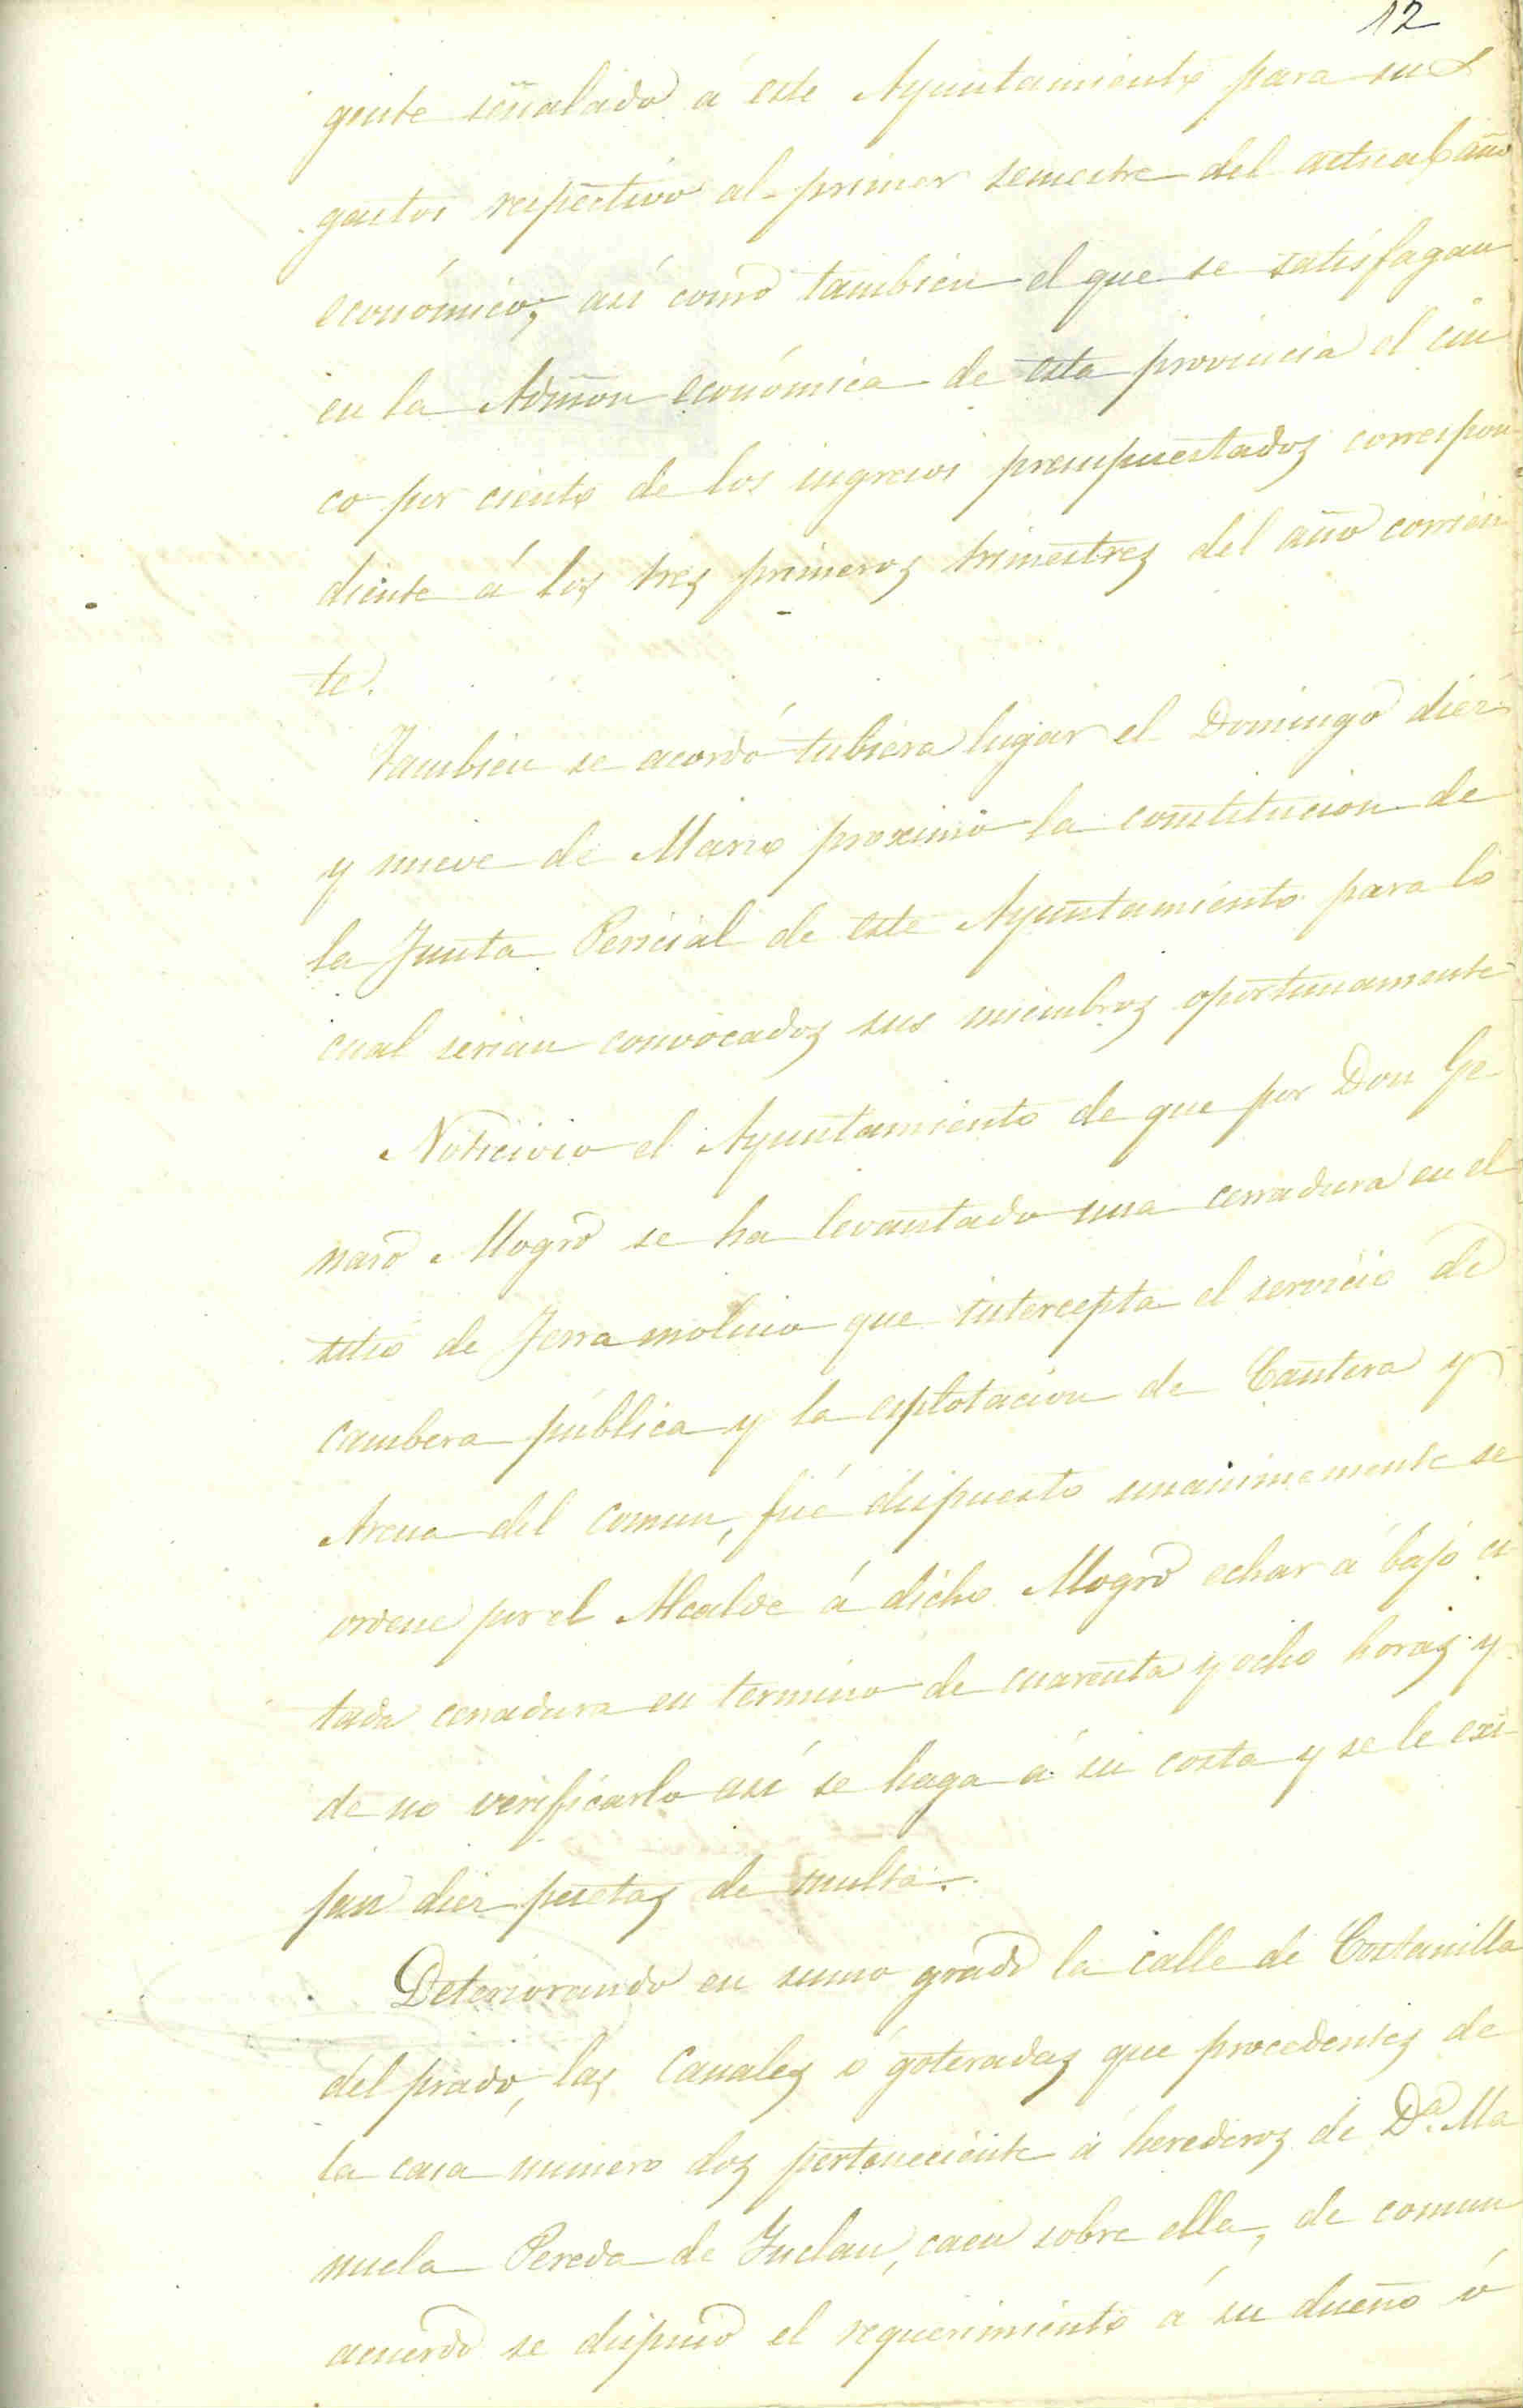 12
gente señalado á este Ayuntamiento para sus
gastos respectivo al primer semestre del actual año
económico, asi como tambien el que se satisfagan
en la Admon económica de esta provincia el cin
co por ciento de los ingresos presupuestados correspon-
diente á los tres primeros trimestres del año corrien
te.
Tambien se acordó tubiera lugar el Domingo diez
y nueve de Marzo proximo la constitucion de
la Junta Pericial de este Ayuntamiento para lo
cual serian convocados sus miembros oportunamente
Noticioso el Ayuntamiento de que por Don Ge
naro Mogro se ha levantado una cerradura en el
sitio de Jerra molino que intercepta el servicio de
cambera pública y la esplotacion de Cantera y
Arena del comun, fué dispuesto unanimemente se
ordene por el Alcalde á dicho Mogro echar á bajo ci
tada cerradura en termino de cuarenta y ocho horas y
de no verificarlo asi se haga á su costa y se le exi-
jan diez pesetas de multa.
Deteriorando en sumo grado la calle de Costanilla
del prado, las Canales ó goteradas que procedentes de
la casa numero dos perteneciente á herederos de Dª. Ma
nuela Pereda de Inclan, caen sobre ella, de comun
acuerdo se dispuso el requerimiento á su dueño ó